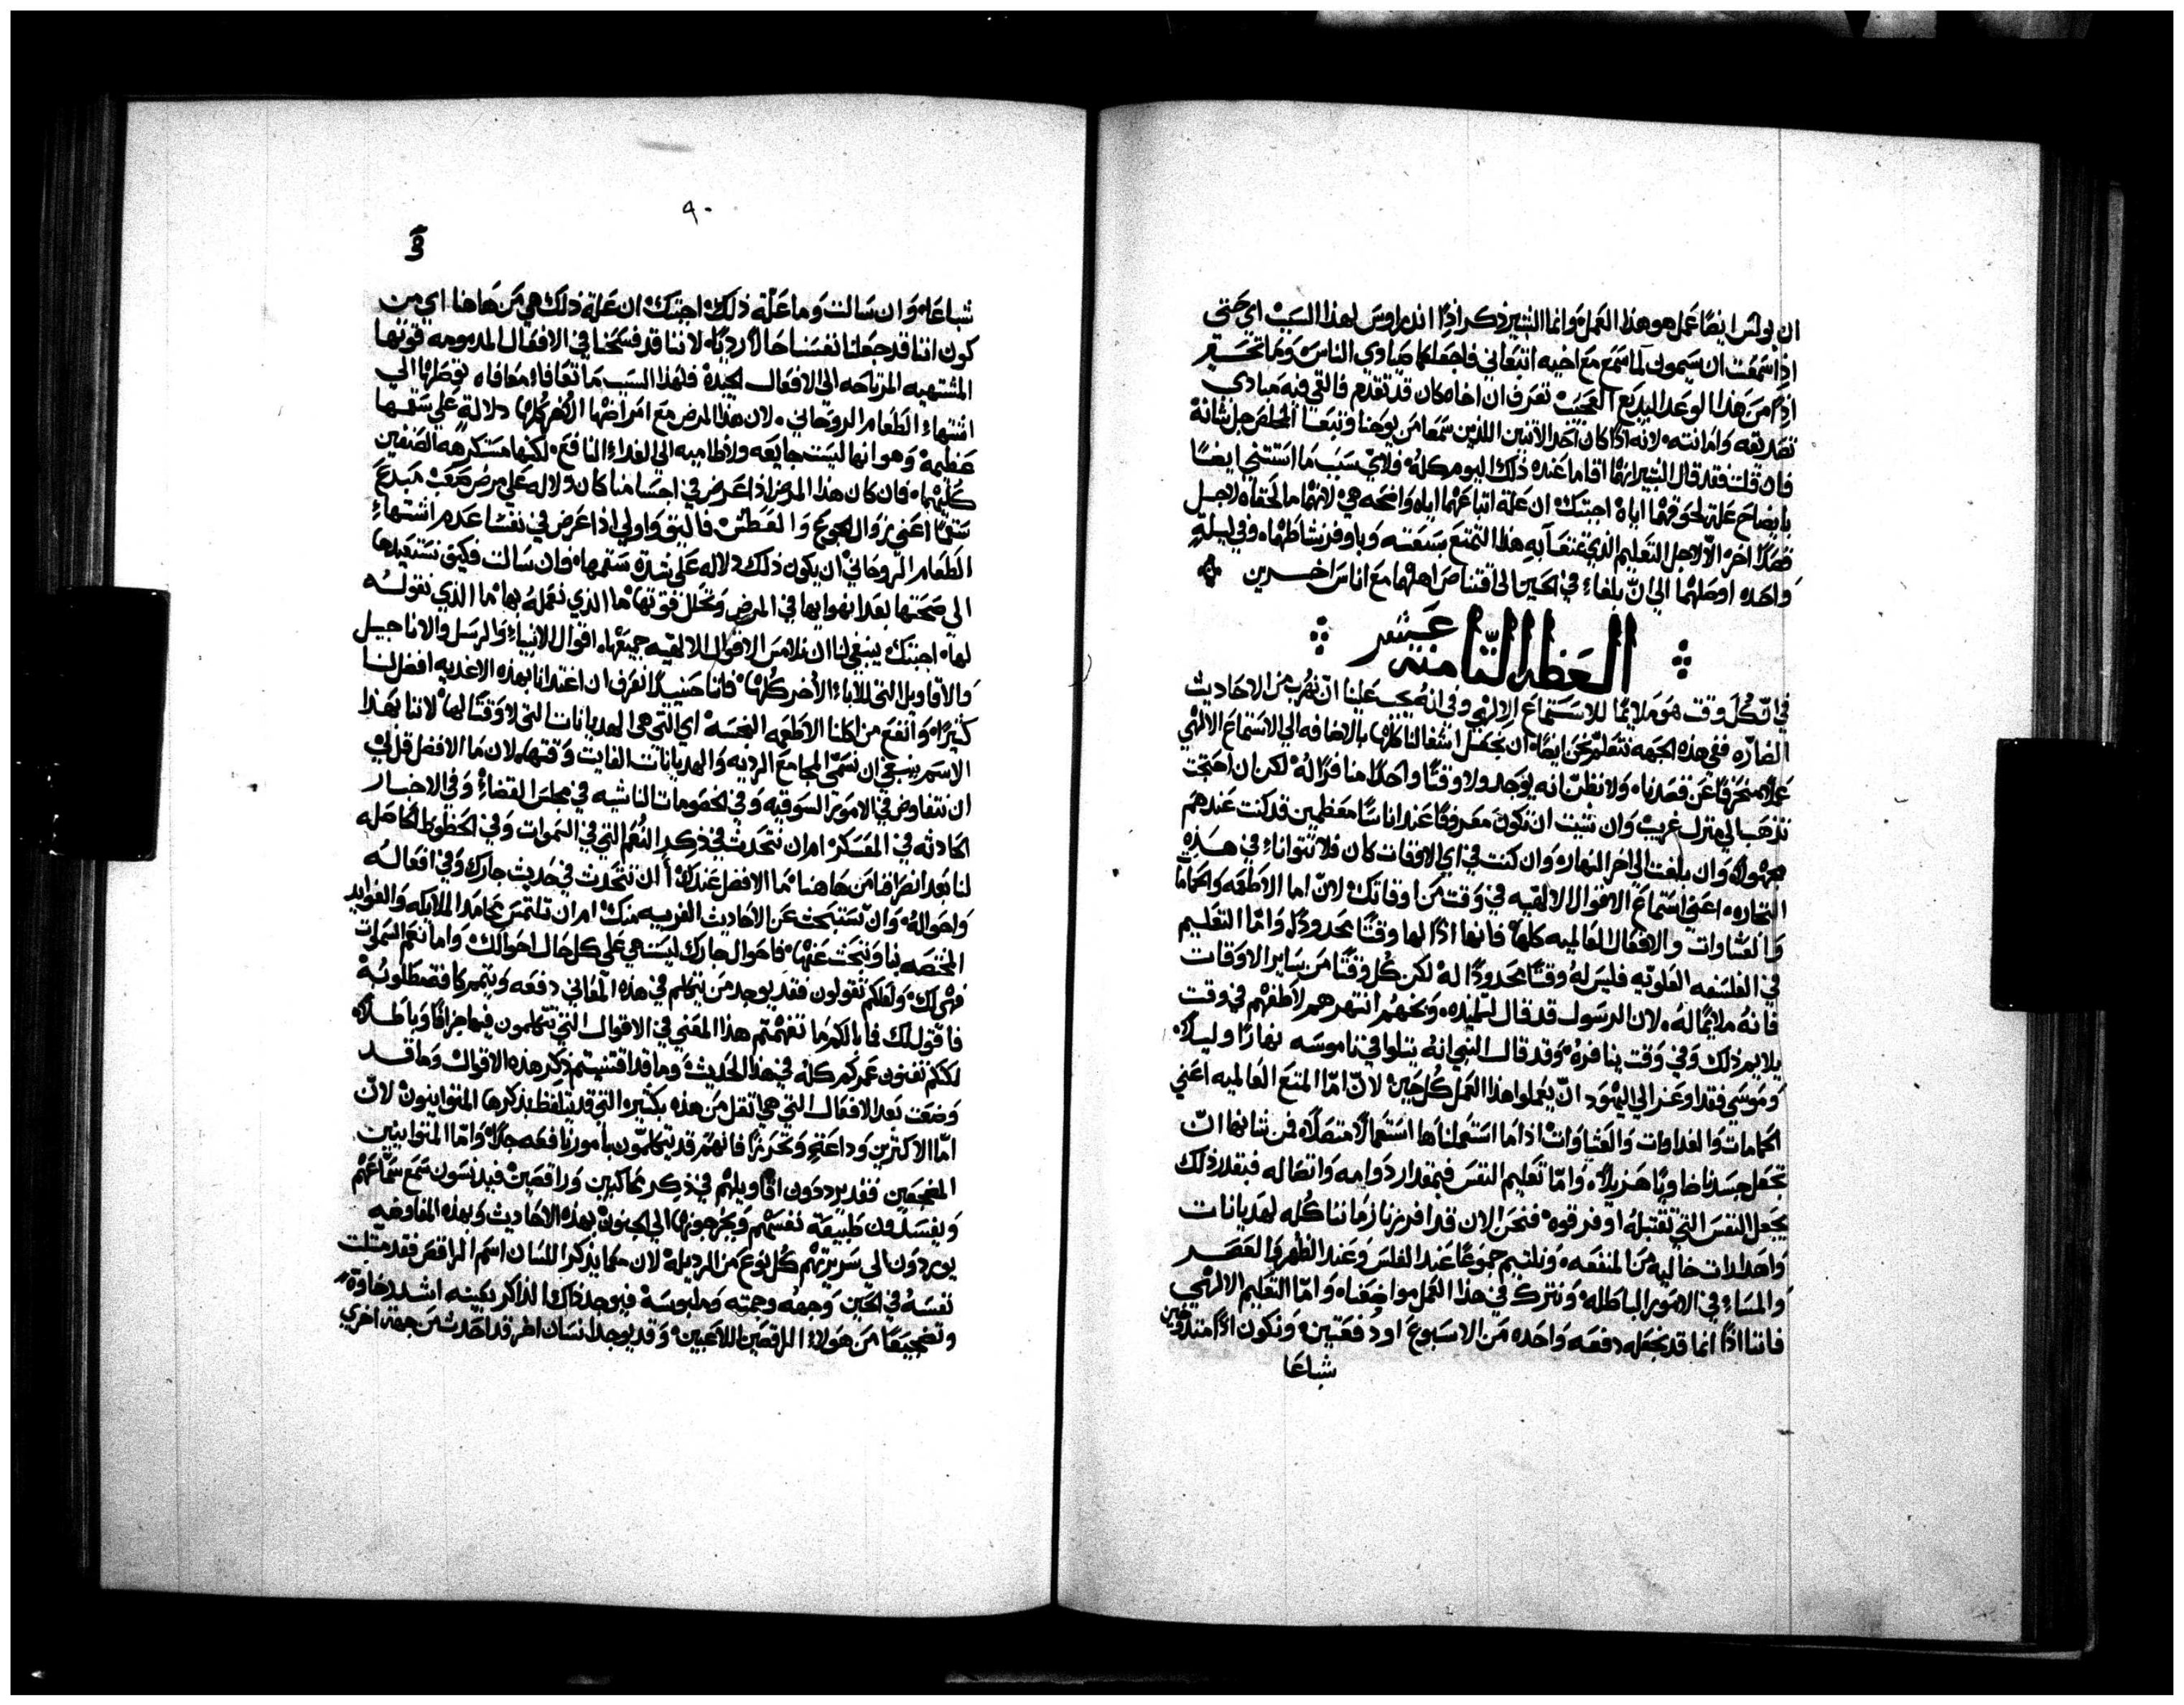 ان بولس ايضًا عمل هو هذا العمل وانما البشير ذكر اذًا اندراوس لهذا السبب اي حتى
اذا سمعت ان سيمون لما سمع مع اخيه اتبعاني فاجعلكما صيادي الناس وما تحـــقر
اذًا من هذا الوعد البديع العجيب تعرف ان اخاه كان قد تقدم فالقي فيه مبادي
تصديقه وامانته لانه اذًا كان احد الاثنين اللذين سمعا من يوحنا وتبعا المخلص جل شانه
فان قلت فقد قال البشير انهما اقاما عنده ذلك اليوم كله ولاي سبب ما استثني ايضًا
بايضاح علة لحوقهما اياه اجبتك ان علة اتباعهما اياه واضحه هي لانهما ما لحقاه لاجل
فصدًا اخر الا لاجل التعليم الذي تمتعا به هذا التمتع بسعته وباوفر نشاطهما وفي ليلة
واحده اوصلهما الي ان بلغاء في الحين الي اقتناص اهلهما مع اناس اخـــرين
العظه الثامنه عشر
في ان كل وقت هو ملايمًا للاستماع الالهي وفي انه يجب علينا ان نهرب من الاحاديث
الضاره ففي هذه الجهه نتعلم نحن ايضًا ان نجعل اشغالنا كلها بالاضافه الي الاستماع الالهي
عملًا منحرفًا عن قصدنا ولا نظن انه يوجد ولا وقتًا واحدًا منافرًا له لكن ان احتجت
تذهب الي منزل غريب وان شيت ان تكون معروفًا عند اناسًا معظمين قد كنت عندهم
مجهولًا وان بلغت الي اخر النهار وان كنت في اي الاوقات كان فلا تتوانا في هـــذه
التجاره اعني استماع الاقوال الالهيه في وقت من اوقاتك لان اما الاطعمه والحمامات
والعشاوات والافعال العالميه كلها فانها اذًا لها وقتًا محدودًا واما التعليم
في الفلسفه العلويه فليس له وقتًا محدودًا له لكن كل وقتًا من ساير الاوقات
فانه ملايمًا له لان الرسول قد قال لتلميذه وبخهم انتهرهم لاطفهم في وقت
يلايم ذلك وفي وقت ينافره وقد قال النبي انه يتلوا في ناموسه نهارًا وليلًا
وموسي فقد اوعز الي اليهود ان يعملوا هذا العمل كل حين لان اما المنع العالميه اعني
الحمامات والغداوات والعشاوات اذا ما استعملناها استعمالًا متصلًا فمن شانها ان
تجعل جسدنا خاويًا هزيلًا واما تعليم النفس فبمقدار دوامه واتصاله فبقدر ذلك
يجعل النفس التي تقتبله اوفر قوه فنحن الان قد افرزنا زماننا كله لهديانات
واهدلات خاليه من المنفعه ونلتيم جموعًا عند الغلس وعند الظهر والعصـــر
والمساء في الامور الباطله ونترك في هذا العمل مواضعنا واما التعليم الالهي
فاننا اذًا انما قد نجعله دفعه واحده من الاسبوع او دفعتين ونكون اذًا متدوخين
شباعا
٩٠
شباعا وان سالت وما علة ذلك اجبتك ان علة ذلك هي من هاهنا اي من
كون اننا قد جعلنا نفسنا حالًا رديًا لاننا قد فسخنا في الافعال المدمومه قوتها
المشتهيه المرتاحه الي الافعال الجيدة فلهذا السبب ما تعافا معافاه توصلها الي
اشتهاء الطعام الروحاني لان هذا المرض مع امراضها الاخر كلها دلالة علي سقمها
عظيمة وهو انها ليست جايعه ولا ظاميه الي الغداء النافع لكنها مستكرهه الصنفين
كليهما فان كان هذا المرض اذا عرض في اجسامنا كان دلاله علي مرض صعب مبدع
سقمًا اعني زوال الجوع والعطش فاليق واولي اذا عرض في نفسًا عدم اشتهاء
الطعام الروحاني ان يكون ذلك دلاله علي شدة سقمها وان سالت فكيف نستعيدها
الي صحتها بعد انهوايها في المرض وتحلل قوتها ما الذي نعمله بها ما الذي نقولـه
لها اجبتك ينبغي لنا ان نلامس الاقوال الالهيه جميعها اقوال الانبياء والرسل والاناجيل
والاقاويل التي للاباء الاخر كلها فاننا حينيذٍ نعرف ان اغتدانا بهذه الاغديه افضل لنا
كثيرًا وانفع من اكلنا الاطعمه النجسه اي التي هي الهديانات التي لا وقتًا لها لاننا بهذا
الاسم ينبغي ان نسمي المجامع الرديه والهديانات الفايت وقتها لان ما الافضل قل لي
ان نتفاوض في الامور السوقيه وفي الخصومات الناشيه في مجلس القضاء وفي الاخبار
الحادثه في العسكر ام ان نتحدث في ذكر النعم التي في السموات وفي الحظوظ الحاصله
لنا بعد انصرافنا من هاهنا ما الافضل عندك أن نتحدث في حديث جارك وفي افعالـه
واحواله وان تستبحث عن الاحاديث الغريبه منك ام ان تلتمس محامد الملايكه والفوايد
المختصه بنا ونبحث عنها فاحوال جارك ليست هي علي كل حال احوالك واما نعم السموات
فهي لك ولعلكم تقولون فقد يوجد من يتكلم في هذه المعاني دفعه ويتمم كافة مطلوبه
فاقول لك فما بالكم ما تفهمتم هذا المعني في الاقوال التي تتكلمون فيها جزافًا وباطـــلًا
لكنكم تفنون عمركم كله في هذا الحديث وما قد اقتنيتم ذكر هذه الاقوال وما قد
وضعت بعد الافعال التي هي اثقل من هذه بكثير التي قد يتلفظ بذكرها المتوانيون لان
اما الاكثرين وداعة وتحرزًا فانهم قد يتكلمون بامور نافعه جدًا واما المتوانيين
المضجعين فقد يرددون اقاويلهم في ذكر محاكيين وراقصين فيدنسون سمع سماعهم
ويفسدون طبيعة نفسهم ويخرجونها الي الجنون بهذه الاحاديث وبهذه المفاوضه
يوردون الي سريرتهم كل نوع من الرديله لان مما يذكر اللسان اسم الراقص فقد مثلت
نفسه في الحين وجهه وجمته وملبوسه فيوجد ذاك الذاكر بعينه اشد رخاوة
وتضجيعًا من هولاء الراقصين اللاعبين وقد يوجد انسان اخر قد احدث من جهة اخري